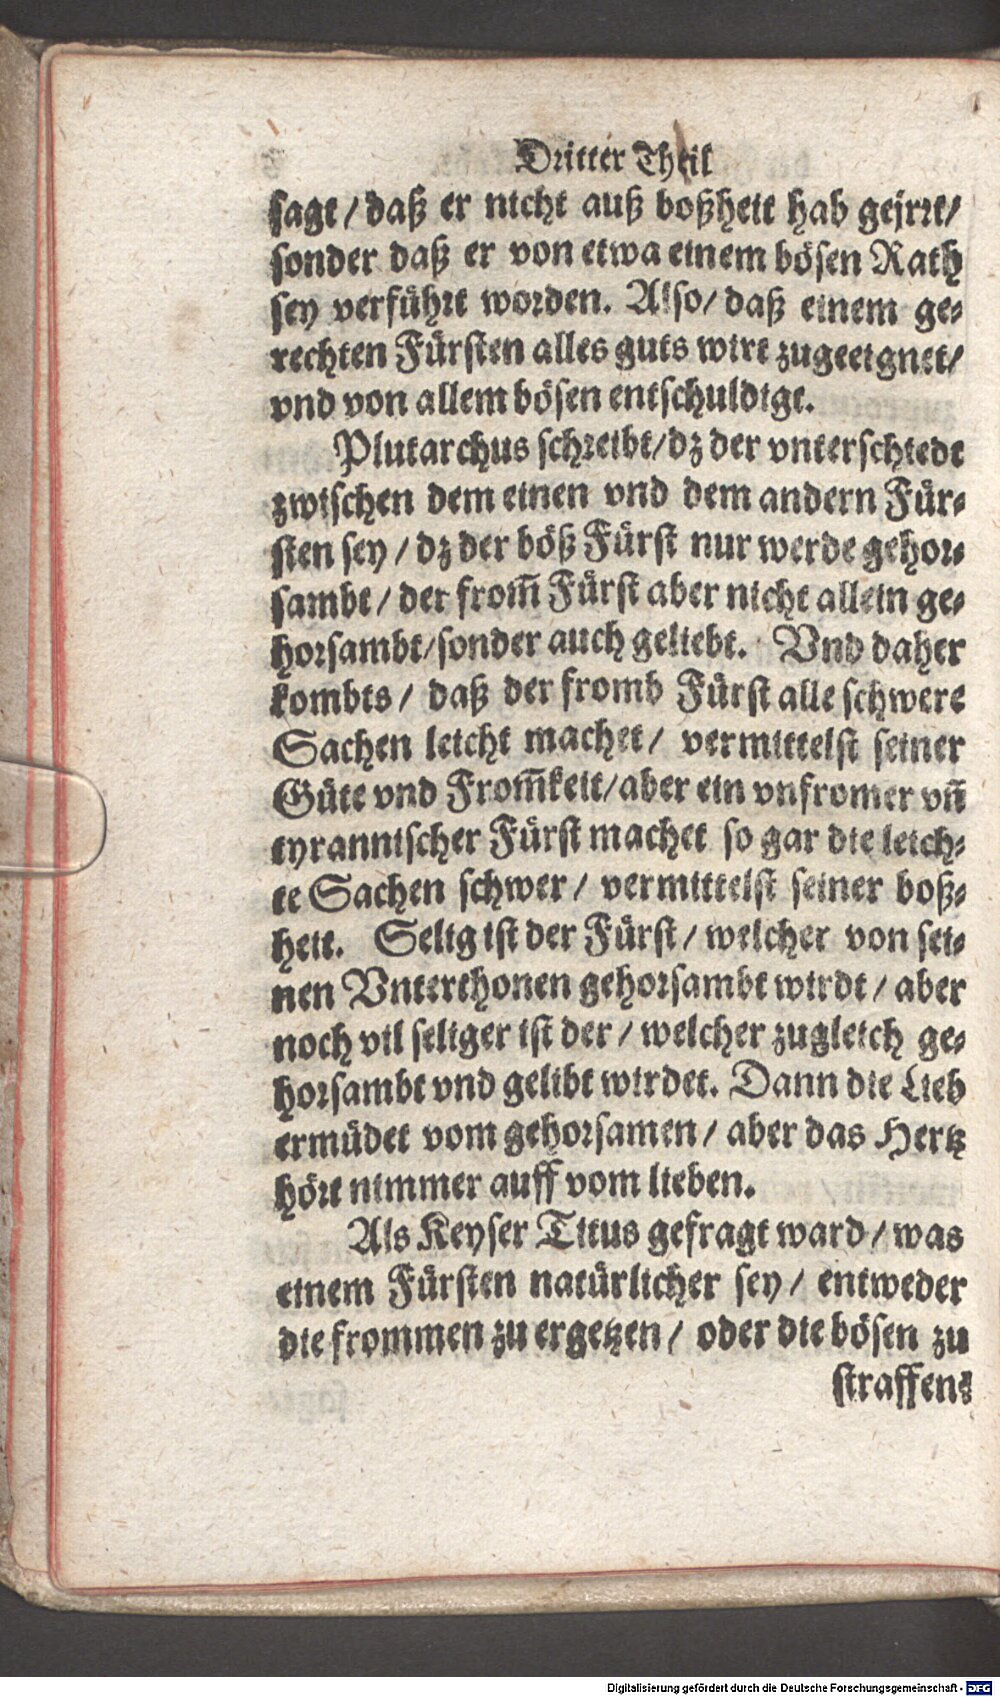 Dritter Theil
sagt / daß er nicht auß boßheit hab gejrrt/
sonder daß er von etwa einem bösen Rath
sey verführt worden. Also/ daß einem ge-
rechten Fürsten alles guts wirt zugeeignet/
vnd von allem bösen entschuldigt.
Plutarchus schreibt/dz der vnterschiedt
zwischen dem einen vnd dem andern Für-
sten sey / dz der böß Fürst nur werde gehor-
sambt / der from̃ Fürst aber nicht allein ge-
horsambt/sonder auch geliebt. Vnd daher
kombts / daß der fromb Fürst alle schwere
Sachen leicht machet / vermittelst seiner
Güte vnd From̃keit/aber ein vnfromer vñ
tyrannischer Fürst machet so gar die leich-
te Sachen schwer / vermittelst seiner boß-
heit. Selig ist der Fürst / welcher von sei-
nen Vnterthonen gehorsambt wirdt / aber
noch vil seliger ist der / welcher zugleich ge-
horsambt vnd gelibt wirdet. Dann die Lieb
ermüdet vom gehorsamen / aber das Hertz
hört nimmer auff vom lieben.
Als Keyser Titus gefragt ward / was
einem Fürsten natürlicher sey / entweder
die frommen zu ergetzen / oder die bösen zu
straffen?
Digitalisierung gefördert durch die Deutsche Forschungsgemeinschaft - DFG